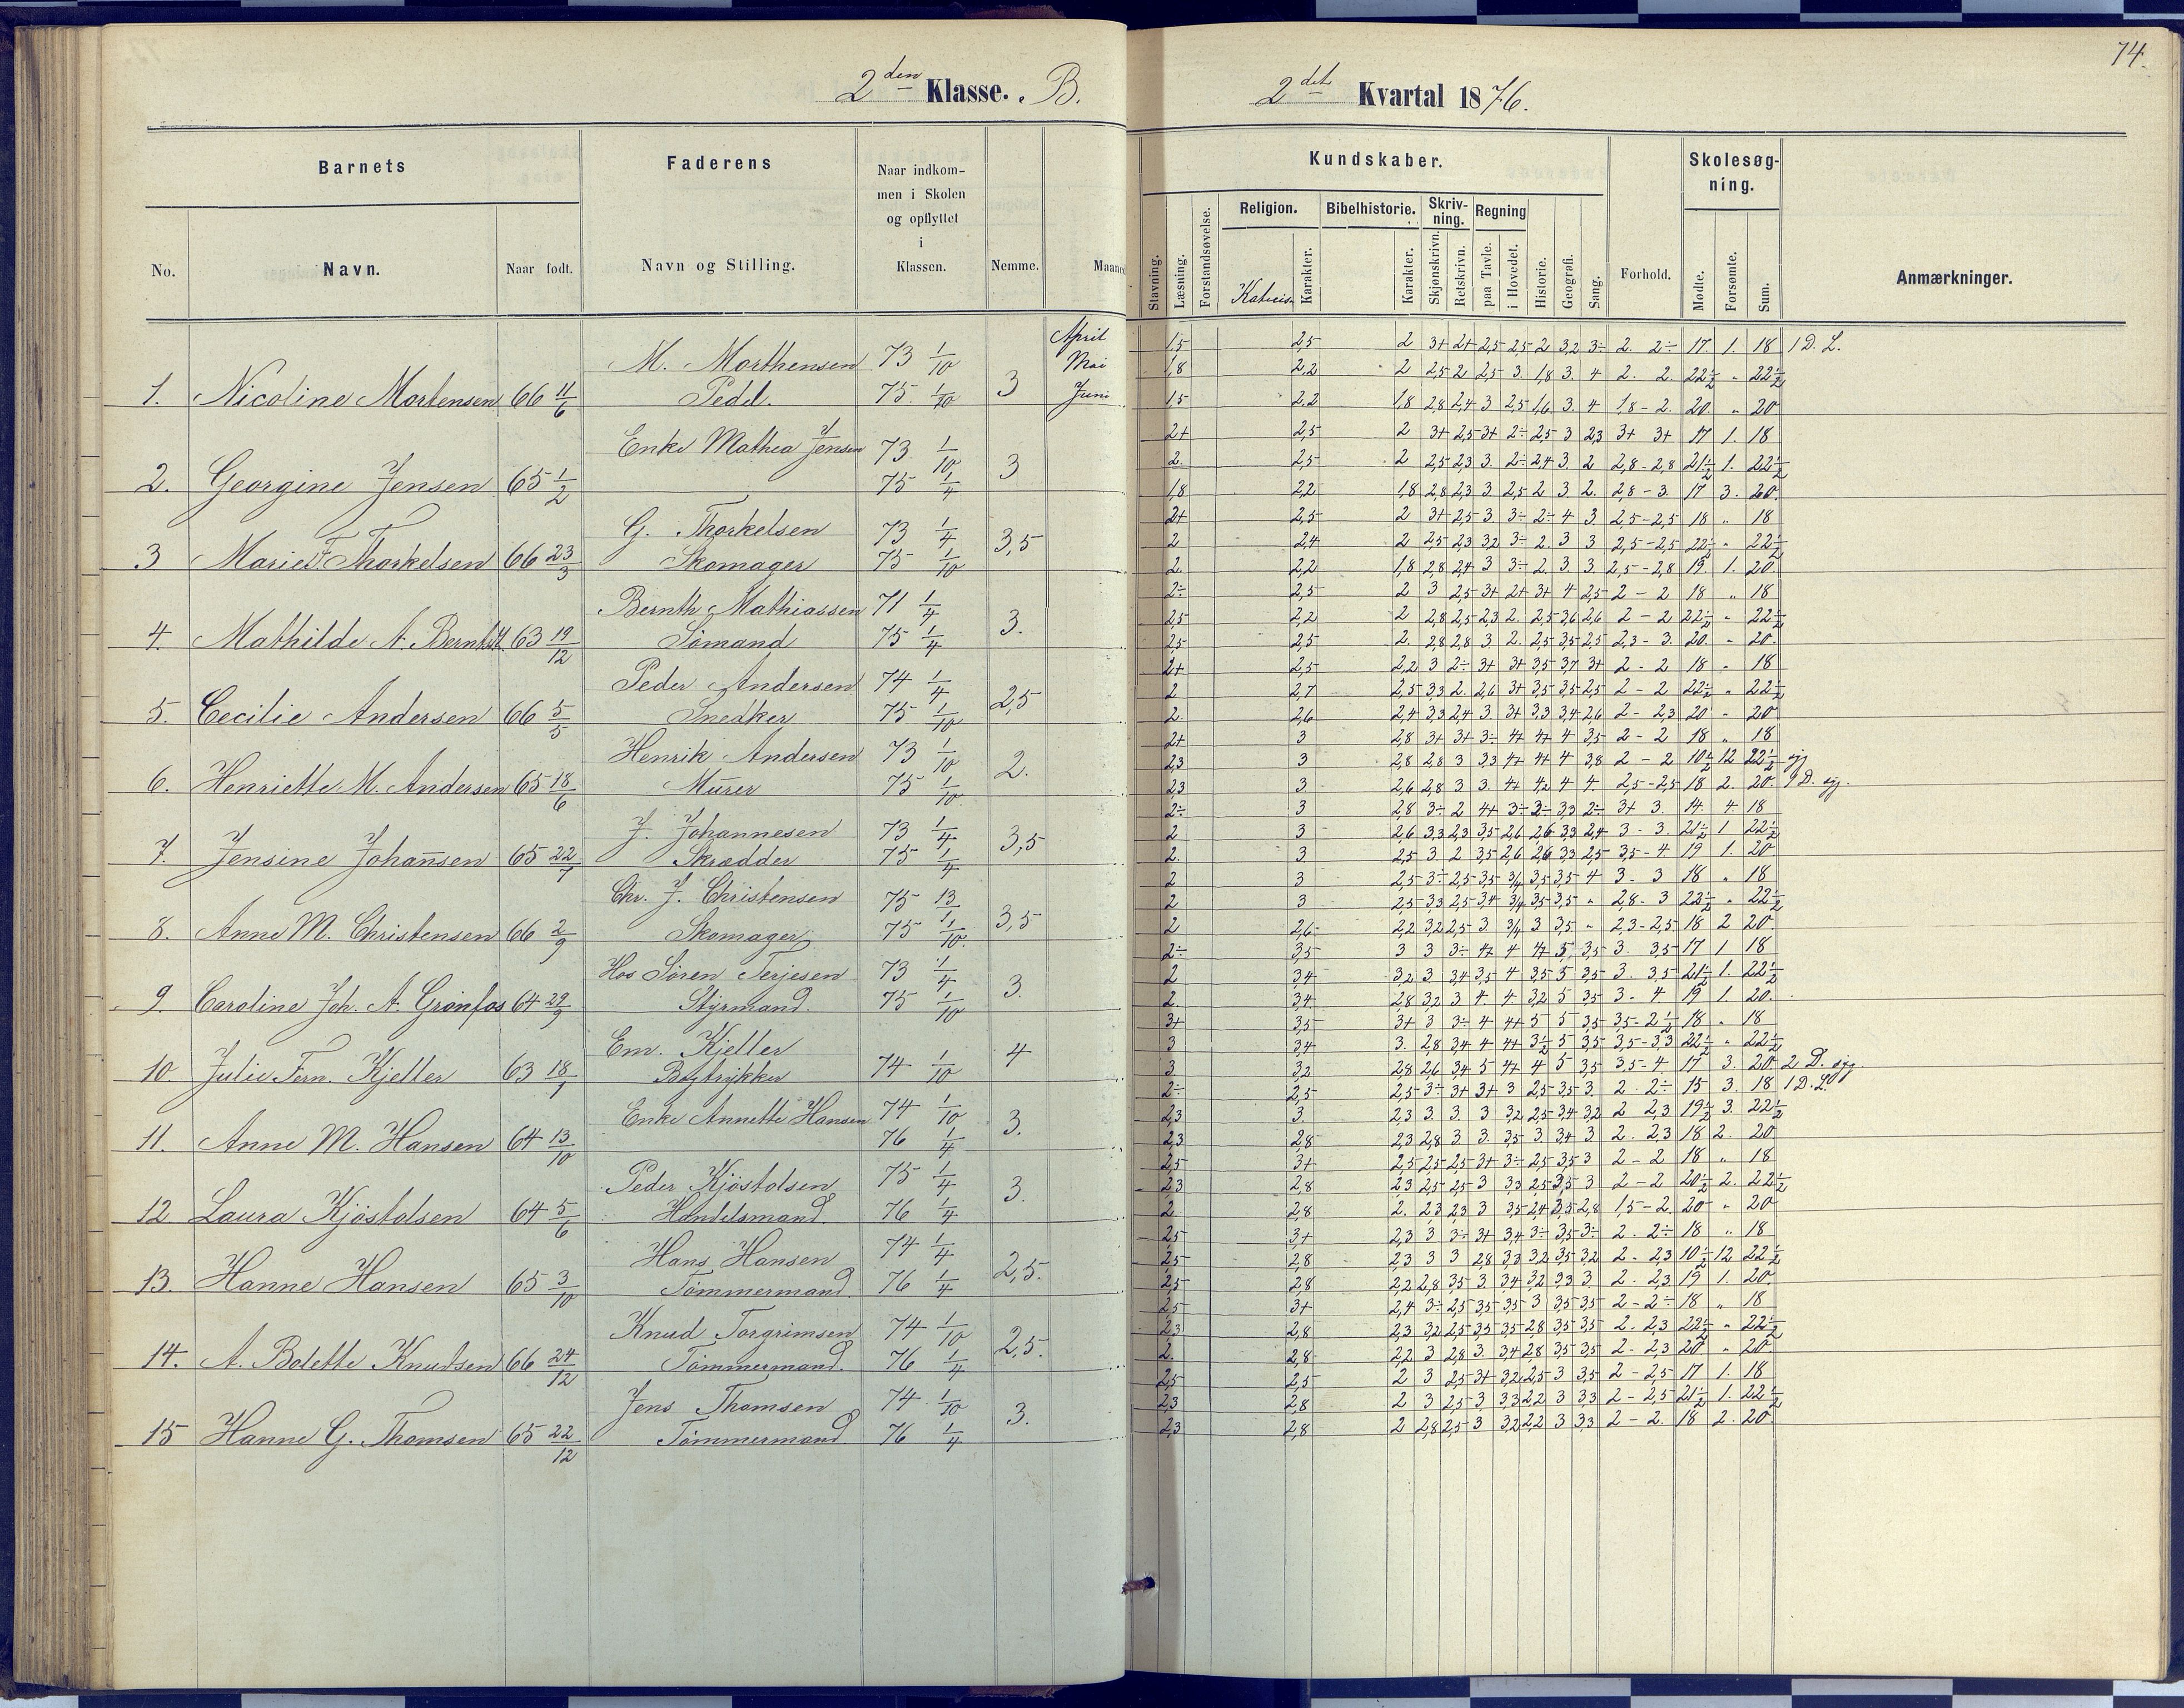 74.
2den Klasse. B.
2det Kvartal 1876.
Barnets
Faderens
Naar indkom-
men i Skolen
og opflyttet
i
Klassen.
Kundskaber.
Skolesøg-
ning.
Religion. Bibelhistorie. Skriv-
ning. Regning
No. Navn. Naar født. Navn og Stilling. Nemme.
Stavning. Læsning. Forstandsøvelse. Karakter. Karakter. Skjønskrivn. Retskrivn. paa Tavle. i Hovedet. Historie. Geografi. Sang. Forhold. Mødte. Forsømte. Sum. Anmærkninger.
April
M. Morthensen 73 1/10 Mai
1. Nicoline Mortensen 66 11/6 Pedel. 75 1/10 3 Juni
1,5 2,5 2 3+ 2+ 2,5 2,5 2 3,2 3÷ 2. 2÷ 17. 1. 18 1 D. L.
1,8 2,2 2 2,5 2 2,5 3. 1,8 3. 4 2. 2. 22½ " 22½
1,5 2,2 1,8 2,8 2,4 3 2,5 1,6 3. 4 1,8 - 2. 20. " 20
Enke Mathea Jensen 73 1/10
2. Georgine Jensen 65 1/2 75 1/4 3
2+ 2,5 2 3+ 2,5 3+ 2÷ 2,5 3 2,3 3+ 3+ 17 1. 18
2. 2,5 2 2,5 2,3 3. 2÷ 2,4 3. 2 2,8 - 2,8 21½ 1. 22½
1,8 2,2 1,8 2,8 2,3 3 2,5 2 3 2. 2,8 - 3. 17 3. 20.
G. Thorkelsen 73 1/4
3 Marie F Thorkelsen 66 23/3 Skomager 75 1/10 3,5
2+ 2,5 2 3+ 2,5 3. 3÷ 2÷ 4 3. 2,5 - 2,5 18 " 18
2 2,4 2 2,5 2,3 3,2 3÷ 2. 3 3 2,5 - 2,5 22½ " 22½
2. 2,2 1,8 2,8 2,4 3 3÷ 2. 3. 3. 2,5 - 2,8 19. 1. 20.
Bernth Mathiassen 71 1/4
4. Mathilde A. 63 19/12 Sömand 75 1/4 3.
2÷ 2,5 2 3 2,5 3+ 2+ 3+ 4 2,5 2 - 2 18 " 18
2,5 2,2 2 2,8 2,5 2,3 2. 2,5 3,6 2,6 2 - 2 22½ " 22½
2,5 2,5 2. 2,8 2,8 3. 2. 2,5 3,5 2,5 2,3 - 3. 20. " 20.
Peder Andersen 74 1/4
5. Cecilie Andersen 66 5/5 Snedker 75 1/10 2,5
2+ 2,5 2,2 3 2÷ 3+ 3+ 3,5 3,7 3+ 2 - 2 18 " 18
2 2,7 2,5 3,3 2. 2,6 3+ 3,5 3,5 2,5 2 - 2 22½ " 22½
2. 2,6 2,4 3,3 2,4 3. 3+ 3,3 3,4 2,6 2 - 2,3 20 " 20
Henrik Andersen 73 1/10
6. Henriette M. Andersen 65 18/6 Murer 75 1/10 2.
2+ 3 2,8 3+ 3+ 3÷ 4+ 4+ 4 3,5 2 - 2 18 " 18
2,3 3 2,8 2,8 3 3,3 4+ 4+ 4 3,8 2 - 2 10½ 12 22½ syg
2,3 3. 2,6 2,8 3 3. 4+ 4 4 2,5 - 2,5 18 2. 20. D. syg.
J. Johannesen 73 1/4
7. Jensine Johansen 65 22/7 Skrædder 75 1/4 3,5
2÷ 3 2,8 3÷ 2 4+ 3÷ 3÷ 3,3 2÷ 3+ 3. 14. 4. 18
2 3 2,6 3,3 2,3 3,5 2,6 2,6 3,3 2,4 3 - 3. 21½ 1 22½
2. 3 2,5 3 2 3,5 2,6 2,6 3,3 2,5 3,5 - 4 19 1. 20
Chr. J. Christensen 75 13/1
8. Anne M. Christensen 66 2/9 Skomager 75 1/10. 3,5
2 3 2,5 3÷ 2,5 3,5 3/4 3,5 3,5 4 3 - 3 18 " 18
2 3 2,5 3,3 2,5 3,4 3/4 3,5 3,5 " 2,8 - 3 22½ " 22½
2 2,6 2,2 3,2 2,5 3 3/4 3 3,5 " 2,3 - 2,5 18 2 20.
Hos Sören Terjesen 73 1/4
9. Caroline Joh. A. Grönfos 64 29/9 Styrmand. 75 1/10 3.
2÷ 3,5 3 3 3÷ 4+ 4 4+ 5 3,5 3. 3,5 17 1 18
2 3,4 3,2 3 3,4 3,5 4 3,5 5 3,5 3. 3,5 21½ 1. 22½
2. 3,4 2,8 3,2 3 4. 4 3,2 5 3,5 3 - 4 19 1. 20.
Em. Kjeller
10. Julie Fern. Kjeller 63 18/1 Bogtrykker 74 1/10 4
3+ 3,5 3+ 3 3÷ 4 4+ 5 5 3,5 3,5 - 2½ 18 " 18
3 3,4 3. 2,8 3,4 4 4+ 3½ 5 3,5 3,5 - 3,3 22½ " 22½
3. 3,2 2,8 2,6 3,4 5 4+ 4 5 3,5 3,5 - 4 17 3. 20 2 D. syg.
Enke Annette Hansen 74 1/10
11. Anne M. Hansen 64 13/10 76 1/4 3.
2÷ 2,5 2,5 3÷ 3+ 3+ 3 2,5 3,5 3. 2 2÷ 15 3. 18 1 D. L.
2,3 3. 2,3 3 3. 3 3,2 2,5 3,4 3,2 2 2,3 19½ 3. 22½
2,3 2,8 2,3 2,8 3 3. 3,5 3. 3,4 3 2. 2,3 18 2. 20
Peder Kjöstolsen 75 1/4
12 Laura Kjöstolsen 64 5/6 Handelsmand. 76 1/4 3.
2,5 3+ 2,5 2,5 2,5 3+ 3÷ 2,5 3,5 3 2 - 2 18 " 18
2,3 2,8 2,3 2,5 2,5 3 3,3 2,5 3,5 3 2 - 2 20½ 2. 22½
2. 2,8 2. 2,3 2,3 3 3,5 2,4 3,5 2,8 1,5 - 2. 20 " 20
Hans Hansen 74 1/4
13. Hanne Hansen 65 3/10 Tömmermand. 76 1/4 2,5.
2,5 3+ 2,3 3 3÷ 3+ 3,4 3÷ 3,5 3÷ 2. 2÷ 18 " 18
2,5 2,8 2,3 3 3 2,8 3,3 3,2 3,5 3,2 2 - 2,3 10½ 12 22½
2,5 2,8 2,2 2,8 3,5 3 3,4 3,2 3,3 3. 2. 2,3 19 1. 20.
Knud Torgrimsen 74 1/10
14. A. Bolette Knudsen 66 24/12 Tömmermand. 76 1/4 2,5.
2,5 3+ 2,4 3÷ 2,5 3,5 3,5 3 3,5 3,5 2 - 2÷ 18 " 18
2,3 2,8 2,3 3,2 2,5 3,5 3,5 2,8 3,5 3,5 2. 2,3 22½ " 22½
2. 2,8 2,2 3 2,8 3. 3,4 2,8 3,5 3,5 2 - 2,3 20 " 20
Jens Thomsen 74 1/10
15 Hanne G. Thomsen 65 22/12 Tömmermand 76 1/4 3.
2,5 2,5 2 3 2,5 3+ 3,2 2,5 3 3,5 2 - 2,5 17 1. 18
2,3 2,8 2 3 2,5 3 3,3 2,2 3 3,3 2 - 2,5 21½ 1. 22½
2,3 2,8 2 2,8 2,5 3 3,2 2,2 3 3,3 2 - 2. 18 2. 20.